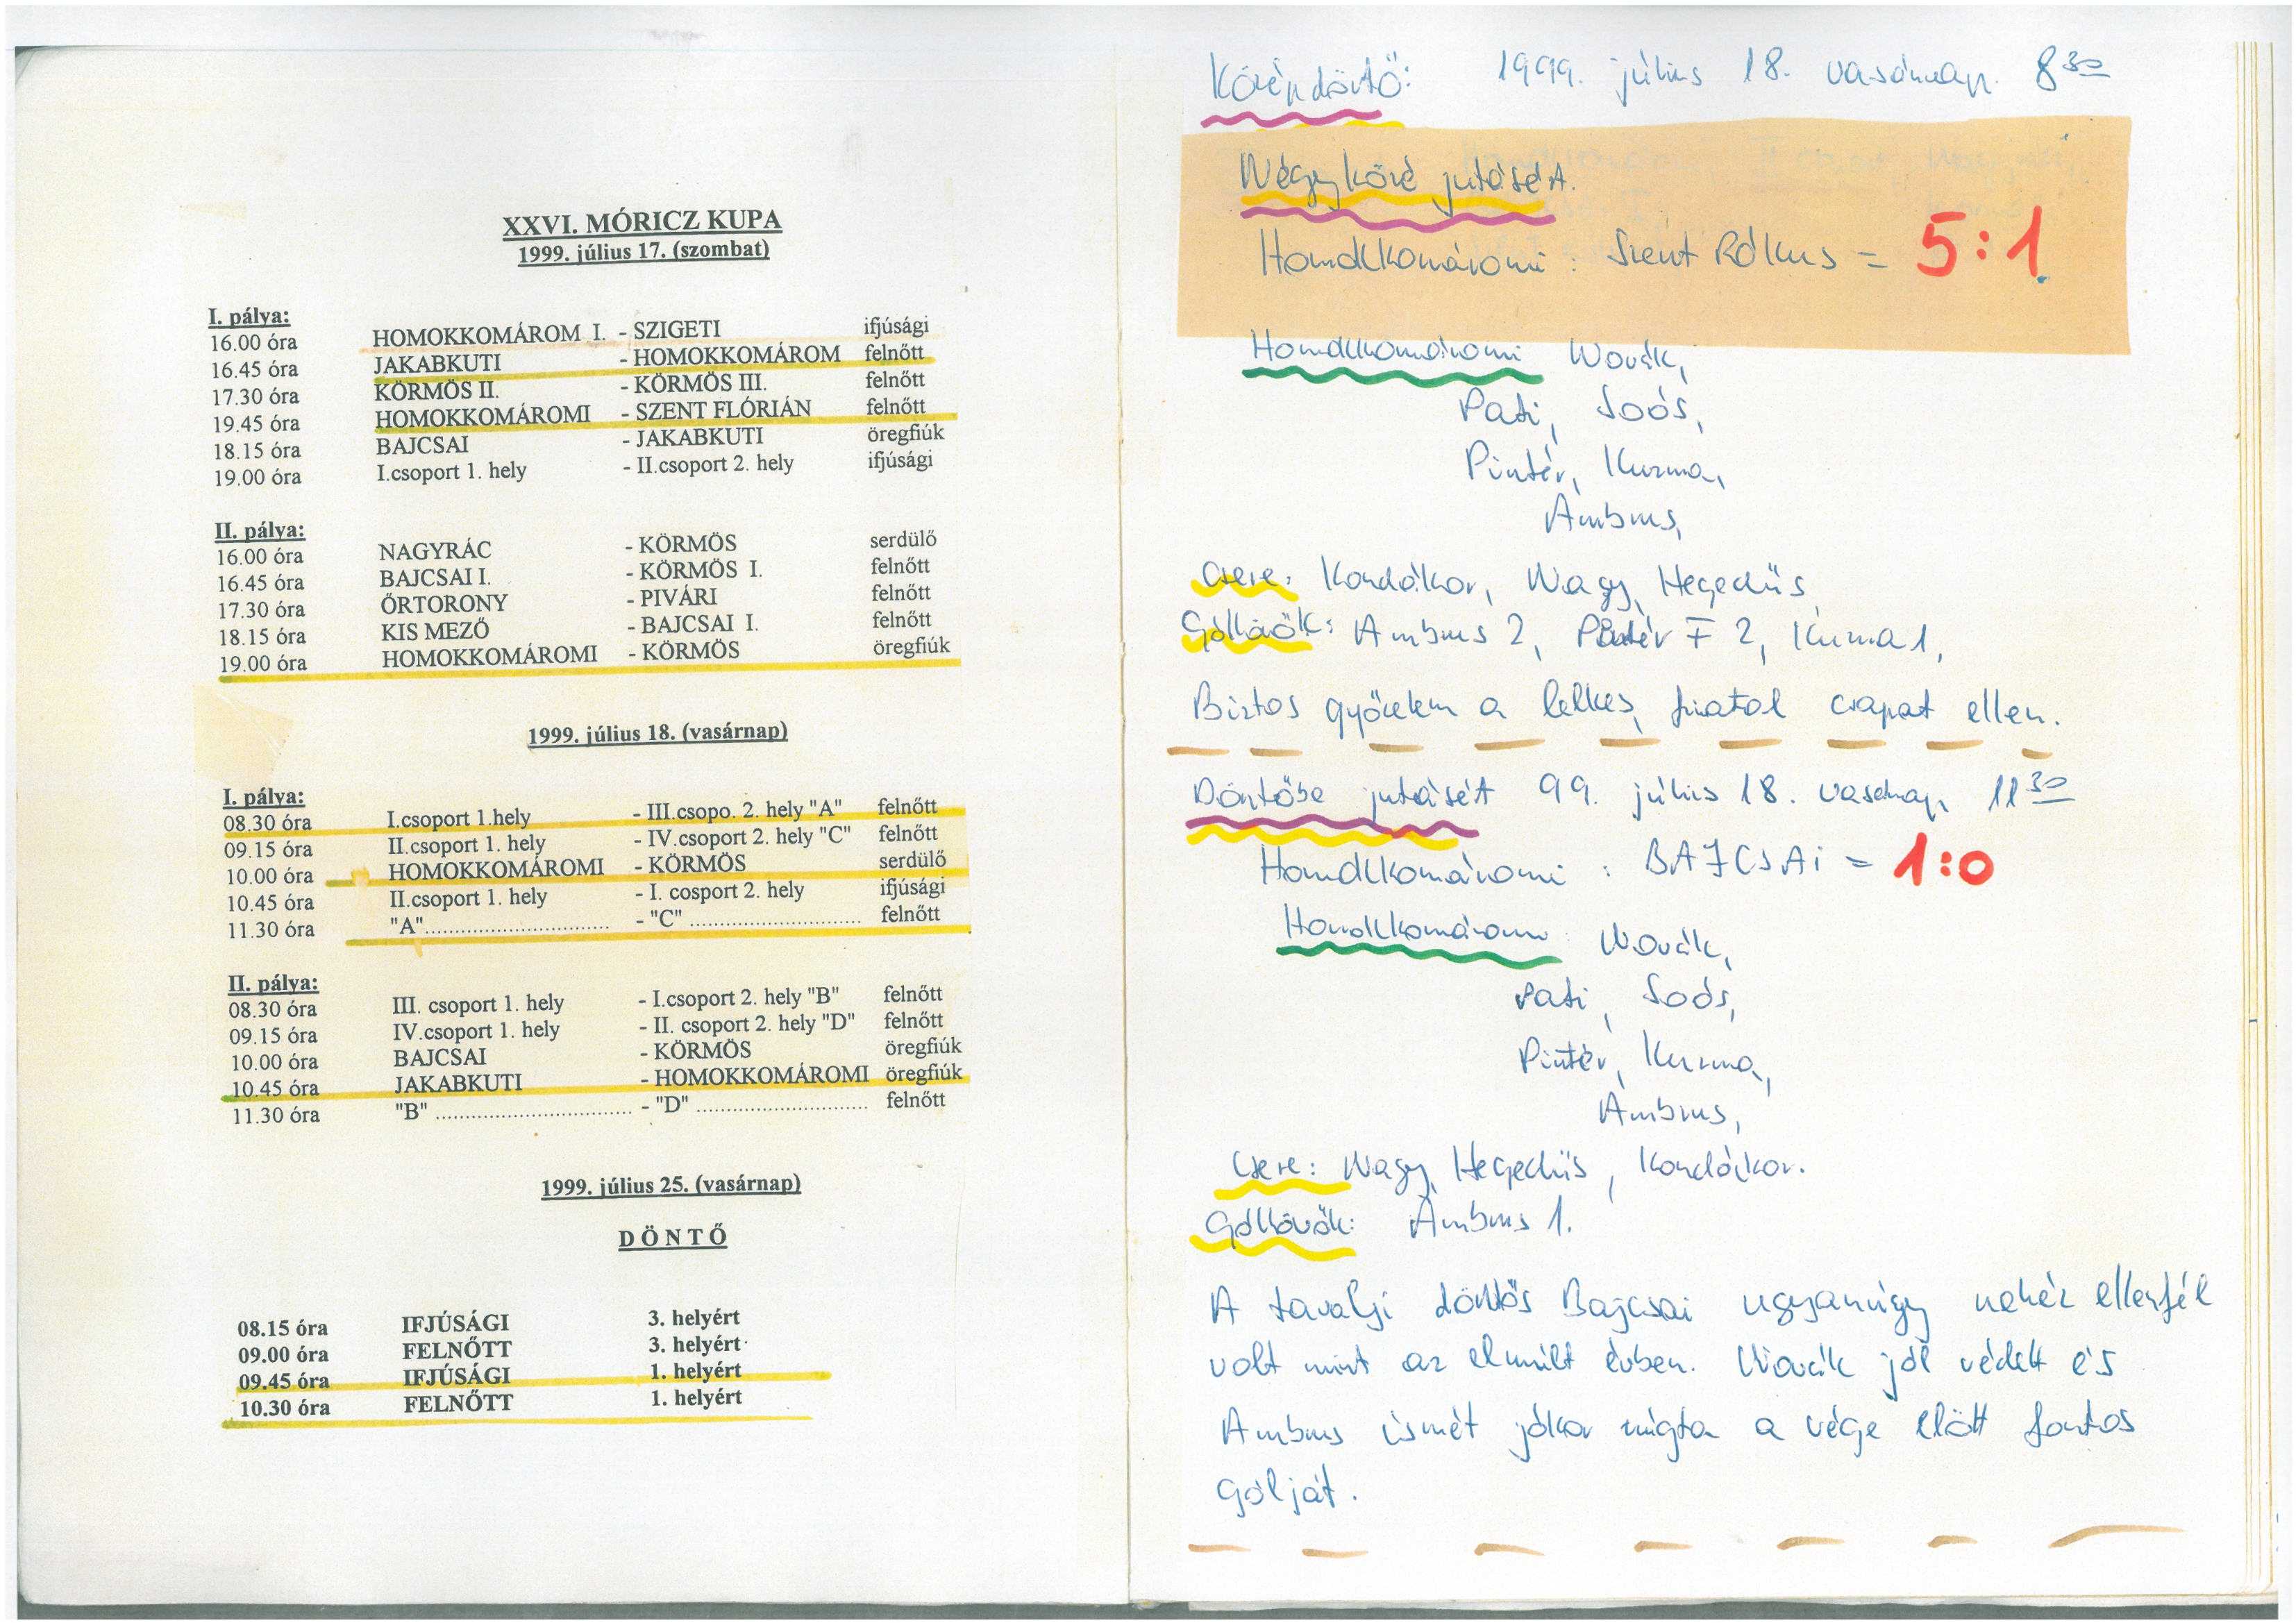 XXVI. MÓRICZ KUPA
1999. július 17. (szombat)
I. pálya:
16.00 óra HOMOKKOMÁROM I. - SZIGETI ifjúsági
16.45 óra JAKABKUTI - HOMOKKOMÁROM felnőtt
17.30 óra KÖRMÖS II. - KÖRMÖS III. felnőtt
19.45 óra HOMOKKOMÁROMI - SZENT FLÓRIÁN felnőtt
18.15 óra BAJCSAI - JAKABKUTI öregfiúk
19.00 óra I.csoport 1. hely - II.csoport 2. hely ifjúsági
II. pálya:
16.00 óra NAGYRÁC - KÖRMÖS serdülő
16.45 óra BAJCSAI I. - KÖRMÖS I. felnőtt
17.30 óra ŐRTORONY - PIVÁRI felnőtt
18.15 óra KIS MEZŐ - BAJCSAI I. felnőtt
19.00 óra HOMOKKOMÁROMI - KÖRMÖS öregfiúk
1999. július 18. (vasárnap)
I. pálya:
08.30 óra I.csoport 1.hely - III.csopo. 2. hely "A" felnőtt
09.15 óra II.csoport 1. hely - IV.csoport 2. hely "C" felnőtt
10.00 óra HOMOKKOMÁROMI - KÖRMÖS serdülő
10.45 óra II.csoport 1. hely - I. cosport 2. hely ifjúsági
11.30 óra "A".............................. - "C" ............................ felnőtt
II. pálya:
08.30 óra III. csoport 1. hely - I.csoport 2. hely "B" felnőtt
09.15 óra IV.csoport 1. hely - II. csoport 2. hely "D" felnőtt
10.00 óra BAJCSAI - KÖRMÖS öregfiúk
10.45 óra JAKABKUTI - HOMOKKOMÁROMI öregfiúk
11.30 óra "B" ................................ - "D" ............................ felnőtt
1999. július 25. (vasárnap)
DÖNTŐ
08.15 óra IFJÚSÁGI 3. helyért
09.00 óra FELNŐTT 3. helyért
09.45 óra IFJÚSÁGI 1. helyért
10.30 óra FELNŐTT 1. helyért
Középdöntő: 1999. július 18. vasárnap. 8 30
Négyközé jutásért.
Homokkomáromi : Szent Rókus = 5:1.
Homokkomáromi Novák,
Pati, Soós,
Pintér, Kuzma,
Ambrus,
Csere: Kondákor, Nagy, Hegedüs
Góllövők: Ambrus 2, Pintér F 2, Kuzma 1,
Biztos győzelem a lelkes, fiatal csapat ellen.
Döntőbe jutásért 99. július 18. vasárnap, 11 30
Homokkomáromi : BAJCSAi = 1:0
Homokkomáromi : Novák,
Pati, Soós,
Pintér, Kuzma,
Ambrus,
Csere: Nagy, Hegedüs, Kondákor.
Góllövők: Ambrus 1.
A tavalyi döntős Bajcsai ugyanúgy nehéz ellenfél
volt mint az elmúlt évben. Novák jól védett és
Ambrus ismét jókor rúgta a vége előtt fontos
gólját.